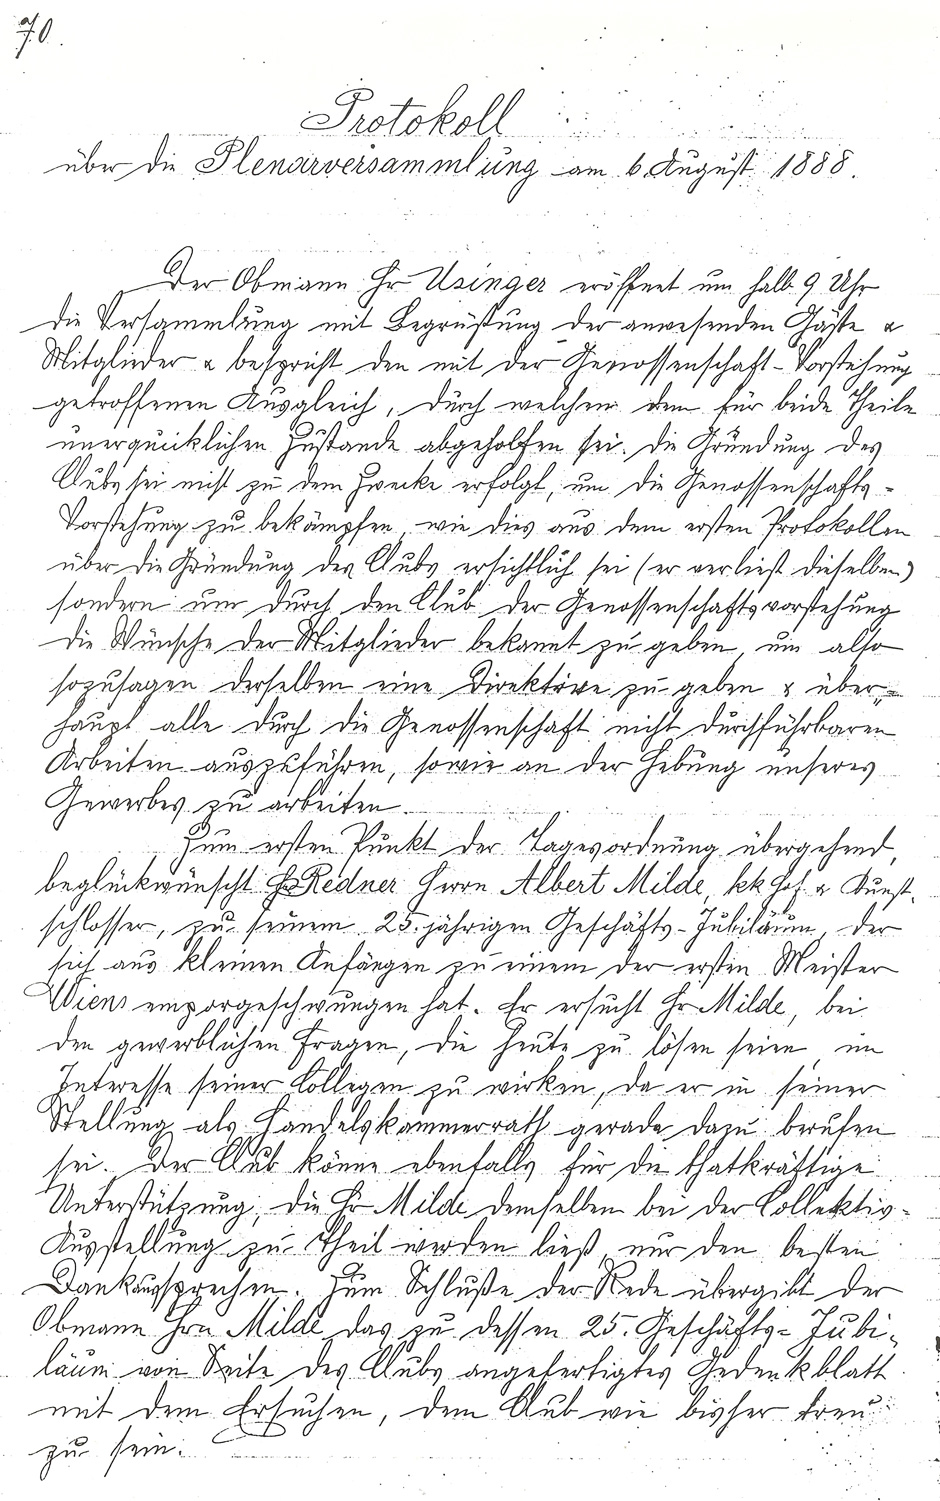 70.
Protokoll
über die Plenarversammlung am 6. August 1888.
Der Obmann Hr Usinger eröffnet um halb 9 Uhr
die Versammlung mit Begrüßung der anwesenden Gäste &
Mitglieder & bespricht den mit der Genossenschaft-Vorstehung
getroffenen Ausgleich, durch welchen dem für beide Theile
unerquicklichen Zustande abgeholfen sei. Die Gründung des
Clubs sei nicht zu dem Zwecke erfolgt, um die Genossenschafts-
Vorstehung zu bekämpfen, wie dies aus dem ersten Protokollen
über die Gründung des Clubs ersichtlich sei (er verließt dieselben)
sondern um durch den Club der Genossenschaftsvorstehung
die Wünsche der Mitglieder bekannt zu geben, um also
sozusagen derselben eine Direktive zu geben & über-
haupt alle durch die Genossenschaft nicht durchführbaren
Arbeiten auszuführen, sowie an der Hebung unseres
Gewerbes zu arbeiten.
Zum ersten Punkt der Tagesordnung übergehend,
beglückwünscht Redner Herrn Albert Milde, kk Hof & Kunst-
schlosser, zu seinem 25. jährigen Geschäfts-Jubiläum, der
sich aus kleinen Anfängen zu einem der ersten Meister
Wiens emporgeschwungen hat. Er ersucht Hr Milde, bei
den gewerblichen Fragen, die heute zu lösen seien, im
Interesse seiner Collegen zu wirken, da er in seiner
Stellung als Handelskammerrath gerade dazu berufen
sei. Der Club könne ebenfalls für die thatkräftige
Unterstützung, die Hr Milde demselben bei der Collektiv-
Ausstellung zu Theil werden ließ, nur den besten
Dank aussprechen. Zum Schluße der Rede übergibt der
Obmann Hrn Milde das zu dessen 25. Geschäfts-Jubi-
läum von Seite des Clubs angefertigtes Gedenkblatt
mit dem Ersuchen, dem Club wie bisher treu
zu sein.